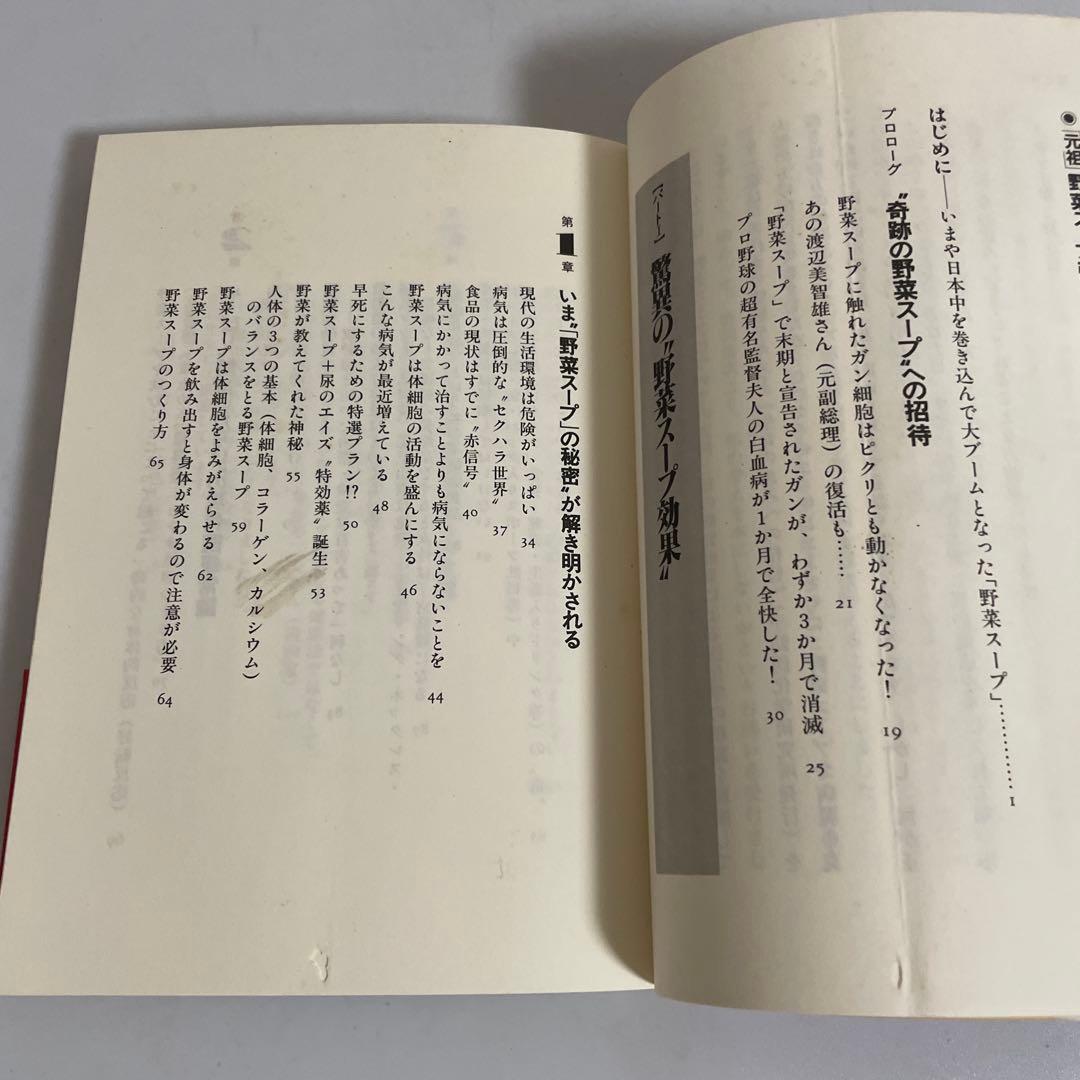 ●[元祖]野菜ス
はじめに――いまや日本中を巻き込んで大ブームとなった「野菜スープ」…………1
プロローグ “奇跡の野菜スープ”への招待
野菜スープに触れたガン細胞はピクリとも動かなくなった！ 19
あの渡辺美智雄さん（元副総理）の復活も…… 21
「野菜スープ」で末期と宣告されたガンが、わずか3か月で消滅 25
プロ野球の超有名監督夫人の白血病が1か月で全快した！ 30
［パート1］驚異の“野菜スープ効果”
第1章 いま“「野菜スープ」の秘密”が解き明かされる
現代の生活環境は危険がいっぱい 34
病気は圧倒的な“セクハラ世界” 37
食品の現状はすでに“赤信号” 40
病気にかかって治すことよりも病気にならないことを 44
野菜スープは体細胞の活動を盛んにする 46
こんな病気が最近増えている 48
早死にするための特選プラン!? 50
野菜スープ＋尿のエイズ“特効薬”誕生 53
野菜が教えてくれた神秘 55
人体の3つの基本（体細胞、コラーゲン、カルシウム）
のバランスをとる野菜スープ 59
野菜スープは体細胞をよみがえらせる 62
野菜スープを飲み出すと身体が変わるので注意が必要 64
野菜スープのつくり方 65